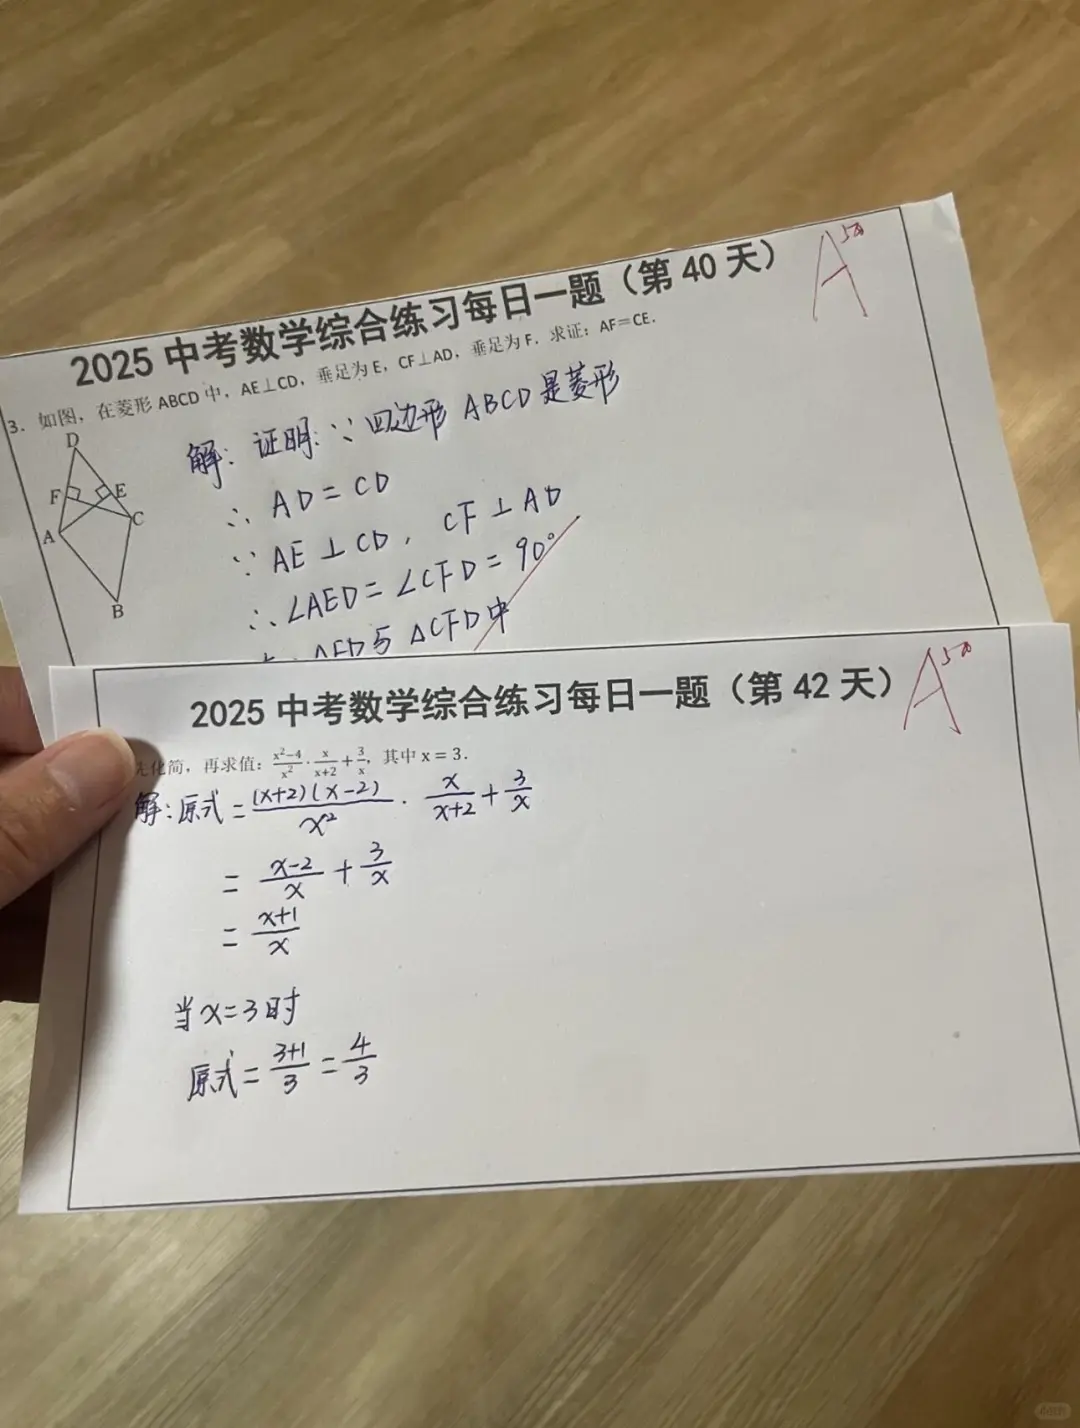 2025 中考数学综合练习每日一题（第 40 天）
3. 如图，在菱形 ABCD 中，AE⊥CD，垂足为 E，CF⊥AD，垂足为 F．求证：AF＝CE．
D
F
E
A
C
B
解：证明：∵四边形 ABCD 是菱形
∴ AD = CD
∵ AE ⊥ CD，CF ⊥ AD
∴ ∠AED = ∠CFD = 90°
与 △CFD中
A
2025 中考数学综合练习每日一题（第 42 天）
先化简，再求值：\frac{x²−4}{x²}·\frac{x}{x+2}+\frac{3}{x}，其中 x = 3．
解：原式 = \frac{(x+2)(x-2)}{x²} · \frac{x}{x+2} + \frac{3}{x}
= \frac{x-2}{x} + \frac{3}{x}
= \frac{x+1}{x}
当 x = 3 时
原式 = \frac{3+1}{3} = \frac{4}{3}
A